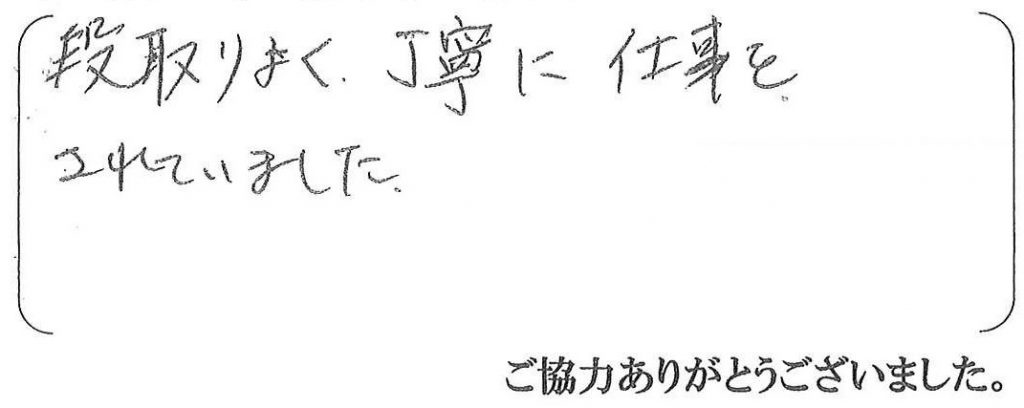 段取りよく、丁寧に仕事を
されていました。
ご協力ありがとうございました。